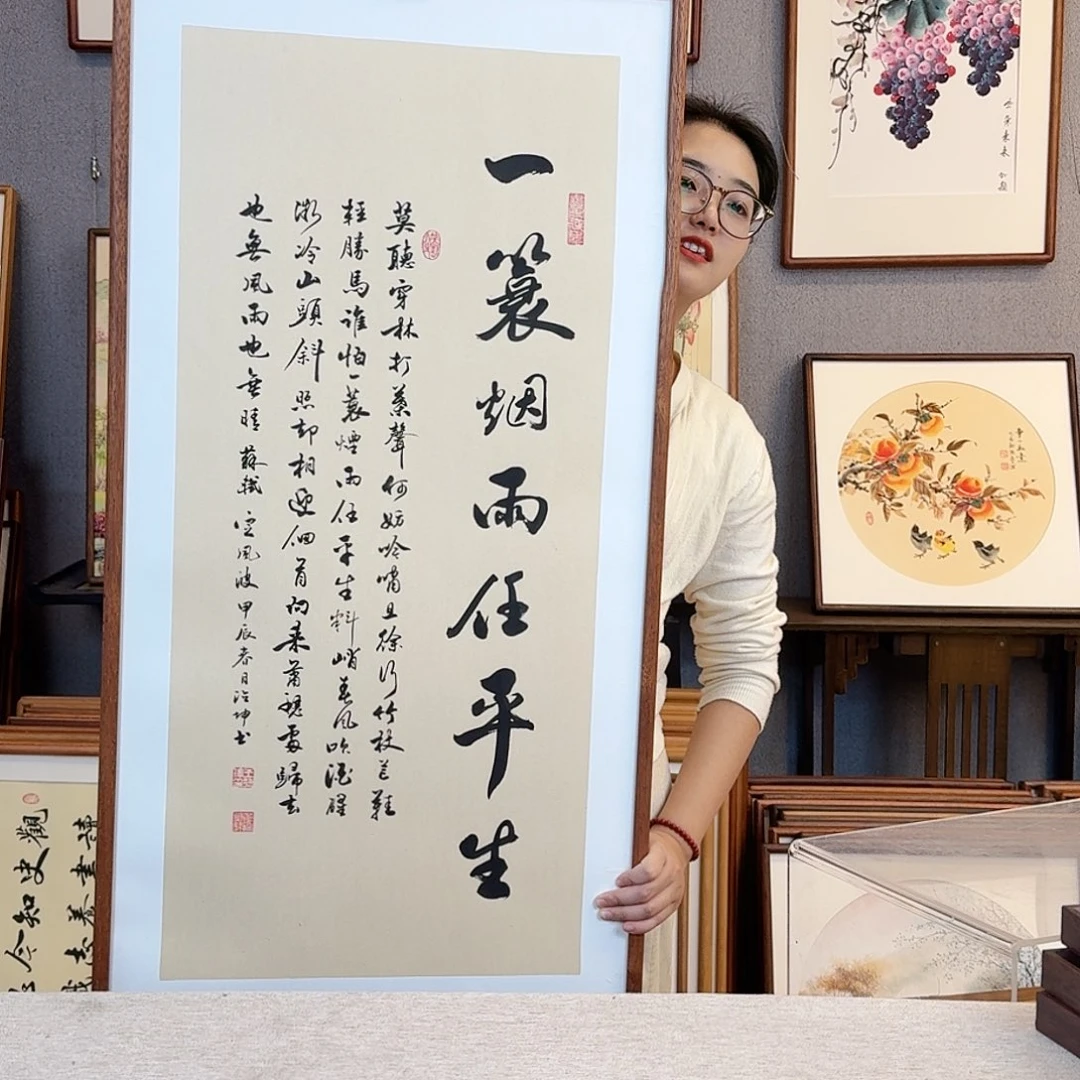 一蓑烟雨任平生
莫聽穿林打葉聲何妨吟嘯且徐行竹杖芒鞋
輕勝馬誰怕一蓑煙雨任平生料峭春風吹酒醒
微冷山頭斜照却相迎回首向来蕭瑟處歸去
也無風雨也無晴 蘇軾 定風波 甲辰春月治坤书
讀書養志
觀史知今